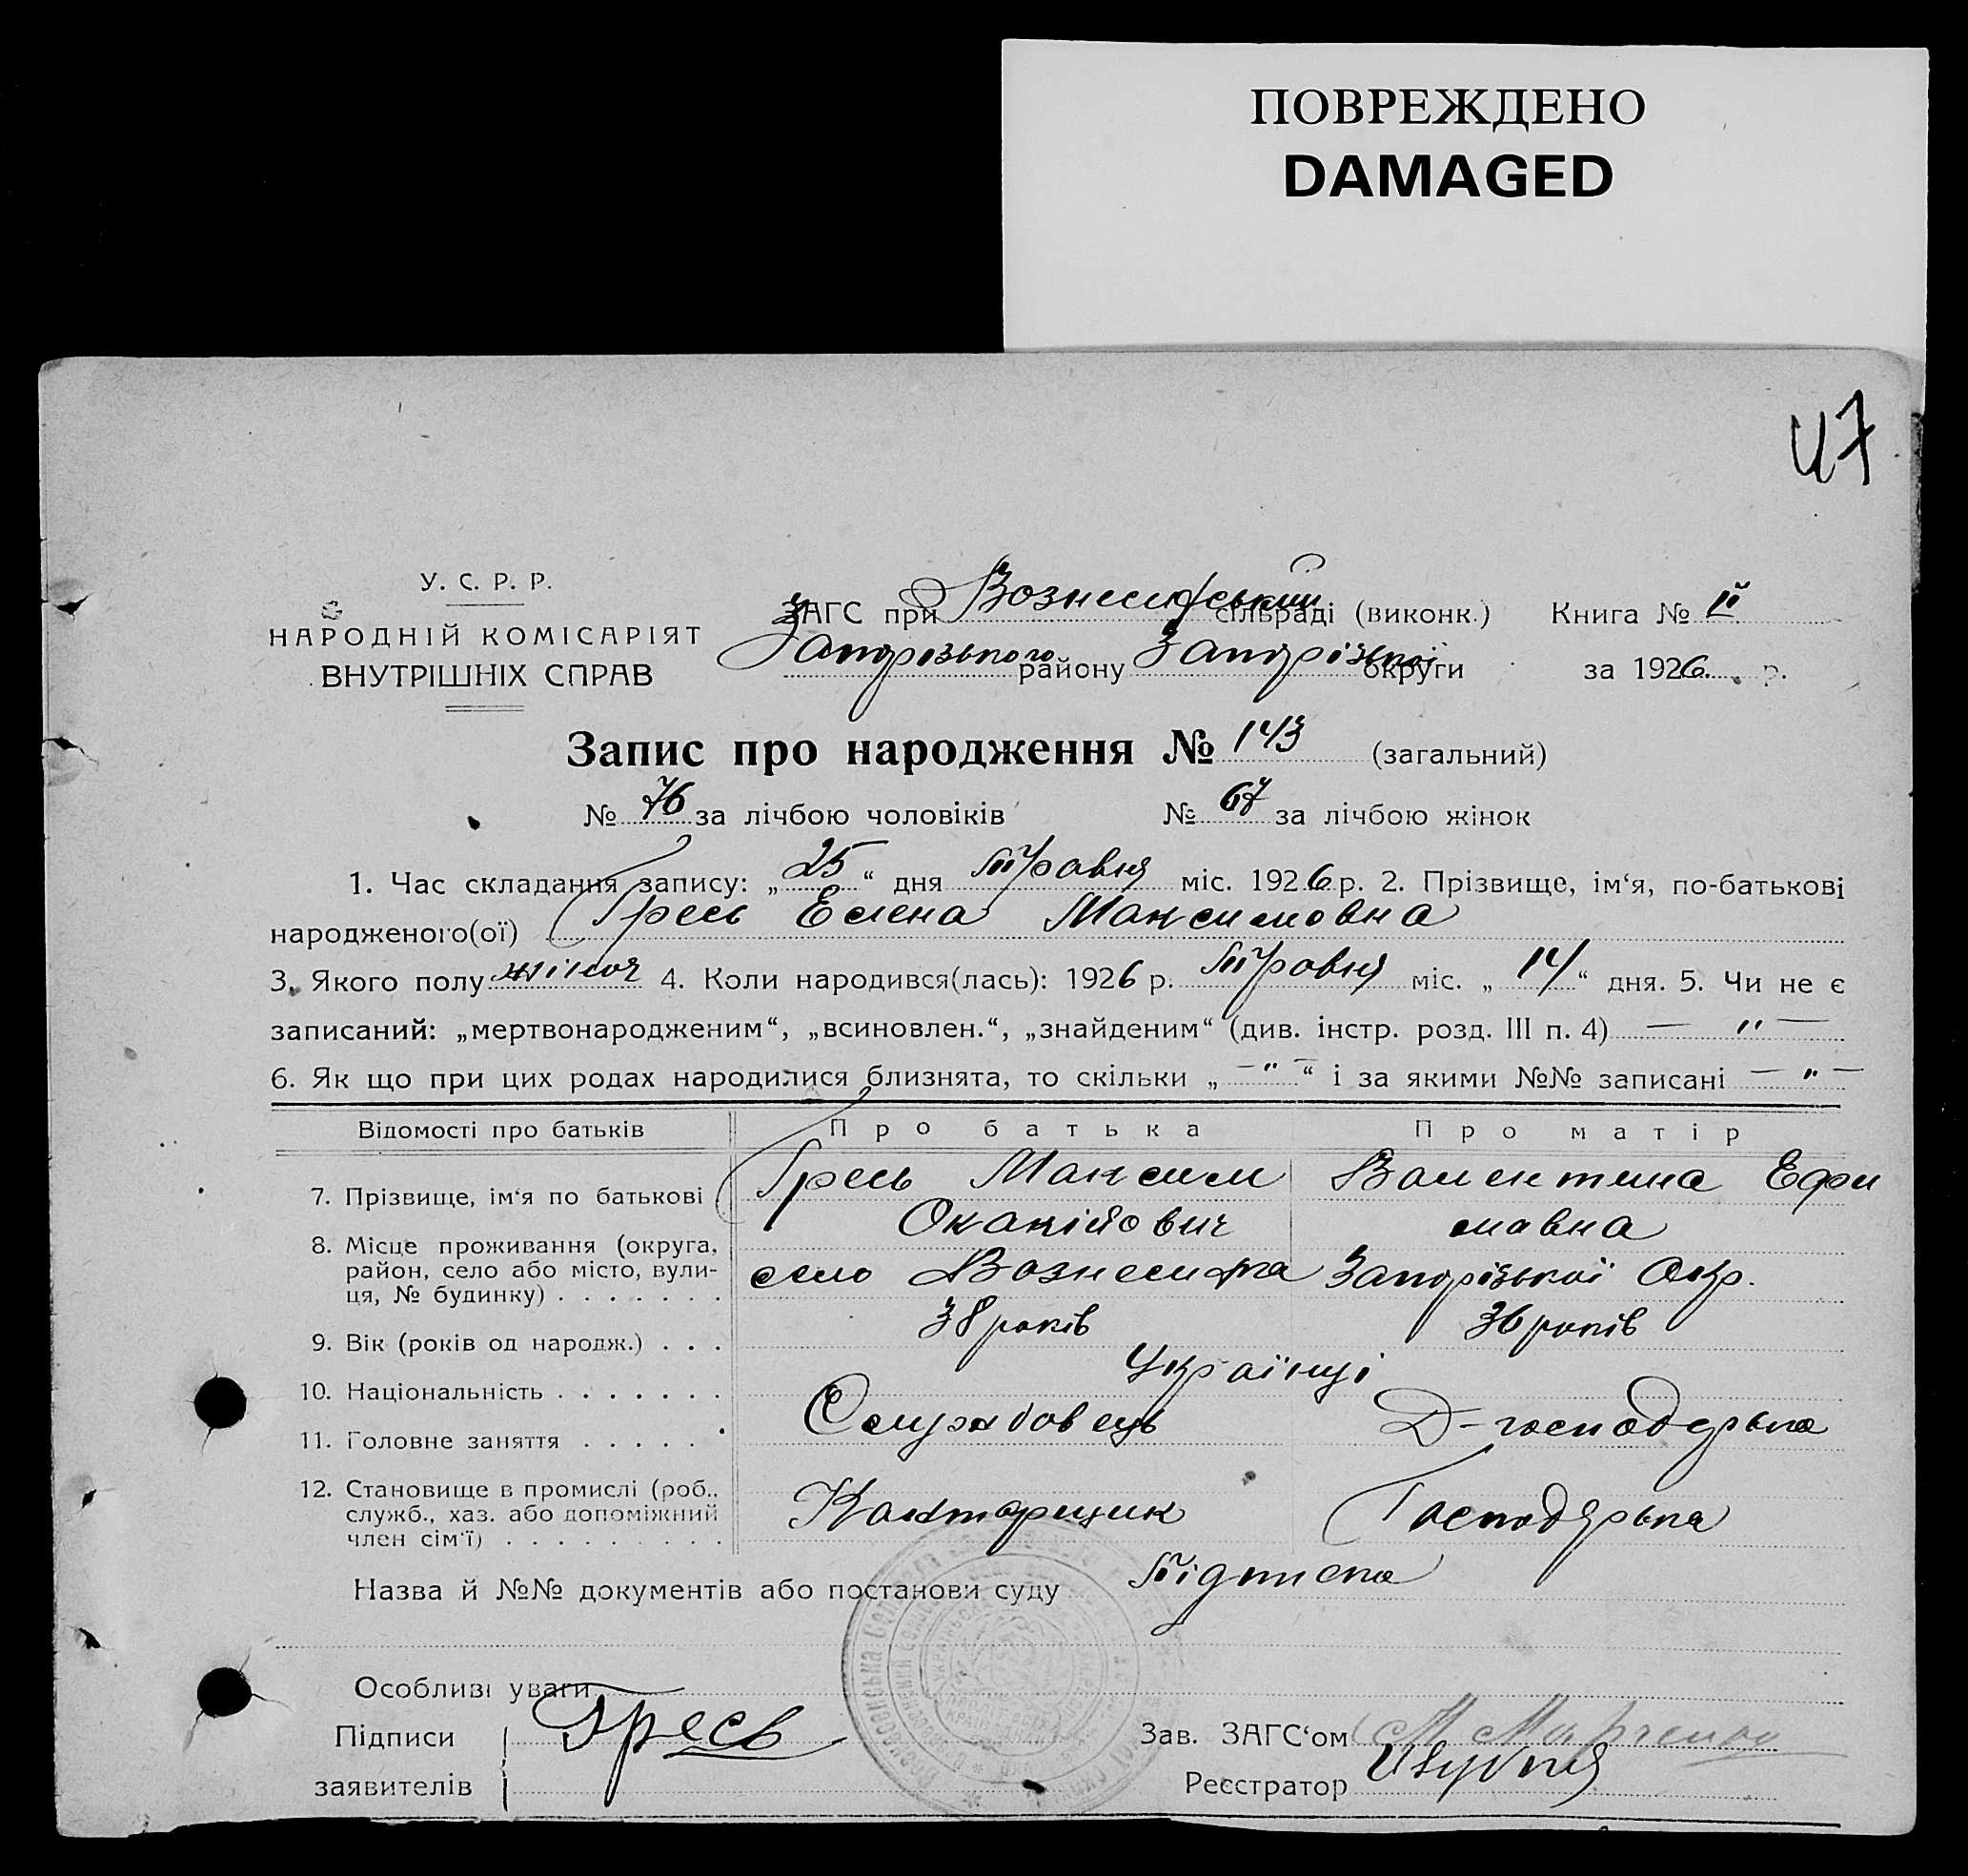 ПОВРЕЖДЕНО
DAMAGED
47
У. С. Р. Р.
НАРОДНІЙ КОМІСАРІЯТ
ВНУТРІШНІХ СПРАВ
ЗАГС при Вознесенський сільраді (виконк.) Книга № II
Запорізького району Запорізької округи за 1926 р.
Запис про народження № 143 (загальний)
№ 76 за лічбою чоловіків № 67 за лічбою жінок
1. Час складання запису: „25“ дня травня міс. 1926 р. 2. Прізвище, ім‘я, по-батькові
народженого(ої) Гресь Елена Максимовна
3. Якого полу жіноч 4. Коли народився(лась): 1926 р. травня міс. „14“ дня. 5. Чи не є
записаний: „мертвонародженим“, „всиновлен.“, „знайденим“ (див. інстр. розд. III п. 4) — " —
6. Як що при цих родах народилися близнята, то скільки „— " —“ і за якими №№ записані — " —
Відомості про батьків Про батька Про матір
7. Прізвище, ім‘я по батькові Гресь Максим Валентина Ефи
мовна
8. Місце проживання (округа,
район, село або місто, вули-
ця, № будинку) . . . . . . . село Вознесенка Запорізької Окр.
9. Вік (років од народж.) . . . 38 років 36 років
10. Національність . . . . . . . Українці
11. Головне заняття . . . . . . Службовець Д-господарька
12. Становище в промислі (роб.,
служб., хаз. або допоміжний
член сім‘ї) . . . . . . . . . Конторщик Господарька
Назва й №№ документів або постанови суду Підписка
Особливі уваги
Підписи
заявителів Гресь
Зав. ЗАГС‘ом М Марченко
Реєстратор